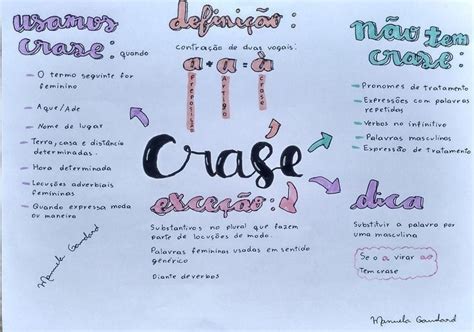 usamos
crase: quando
- O termo seguinte for
feminino
- Aquele/Ade
- Nome de lugar
- Terra, casa e distância
determinadas.
- Hora determinada
- Locuções adverbiais
femininas
- Quando expressa moda
or maneira
Manuela Gandard
definição:
contração de duas vogais:
a + a = à
Preposição
Artigo
crase
Crase
exceção:
Substantivos no plural que fazem
parte de locuções de modo.
Palavras femininas usadas em sentido
genérico
Diante de verbos
não tem
crase:
- Pronomes de tratamento
- Expressões com palavras
repetidas
- Verbos no infinitivo
- Palavras masculinas
- Expressão de tratamento
dica
Substituir a palavra por
uma masculina
Se o a virar ao
Tem crase
Manuela Gandard